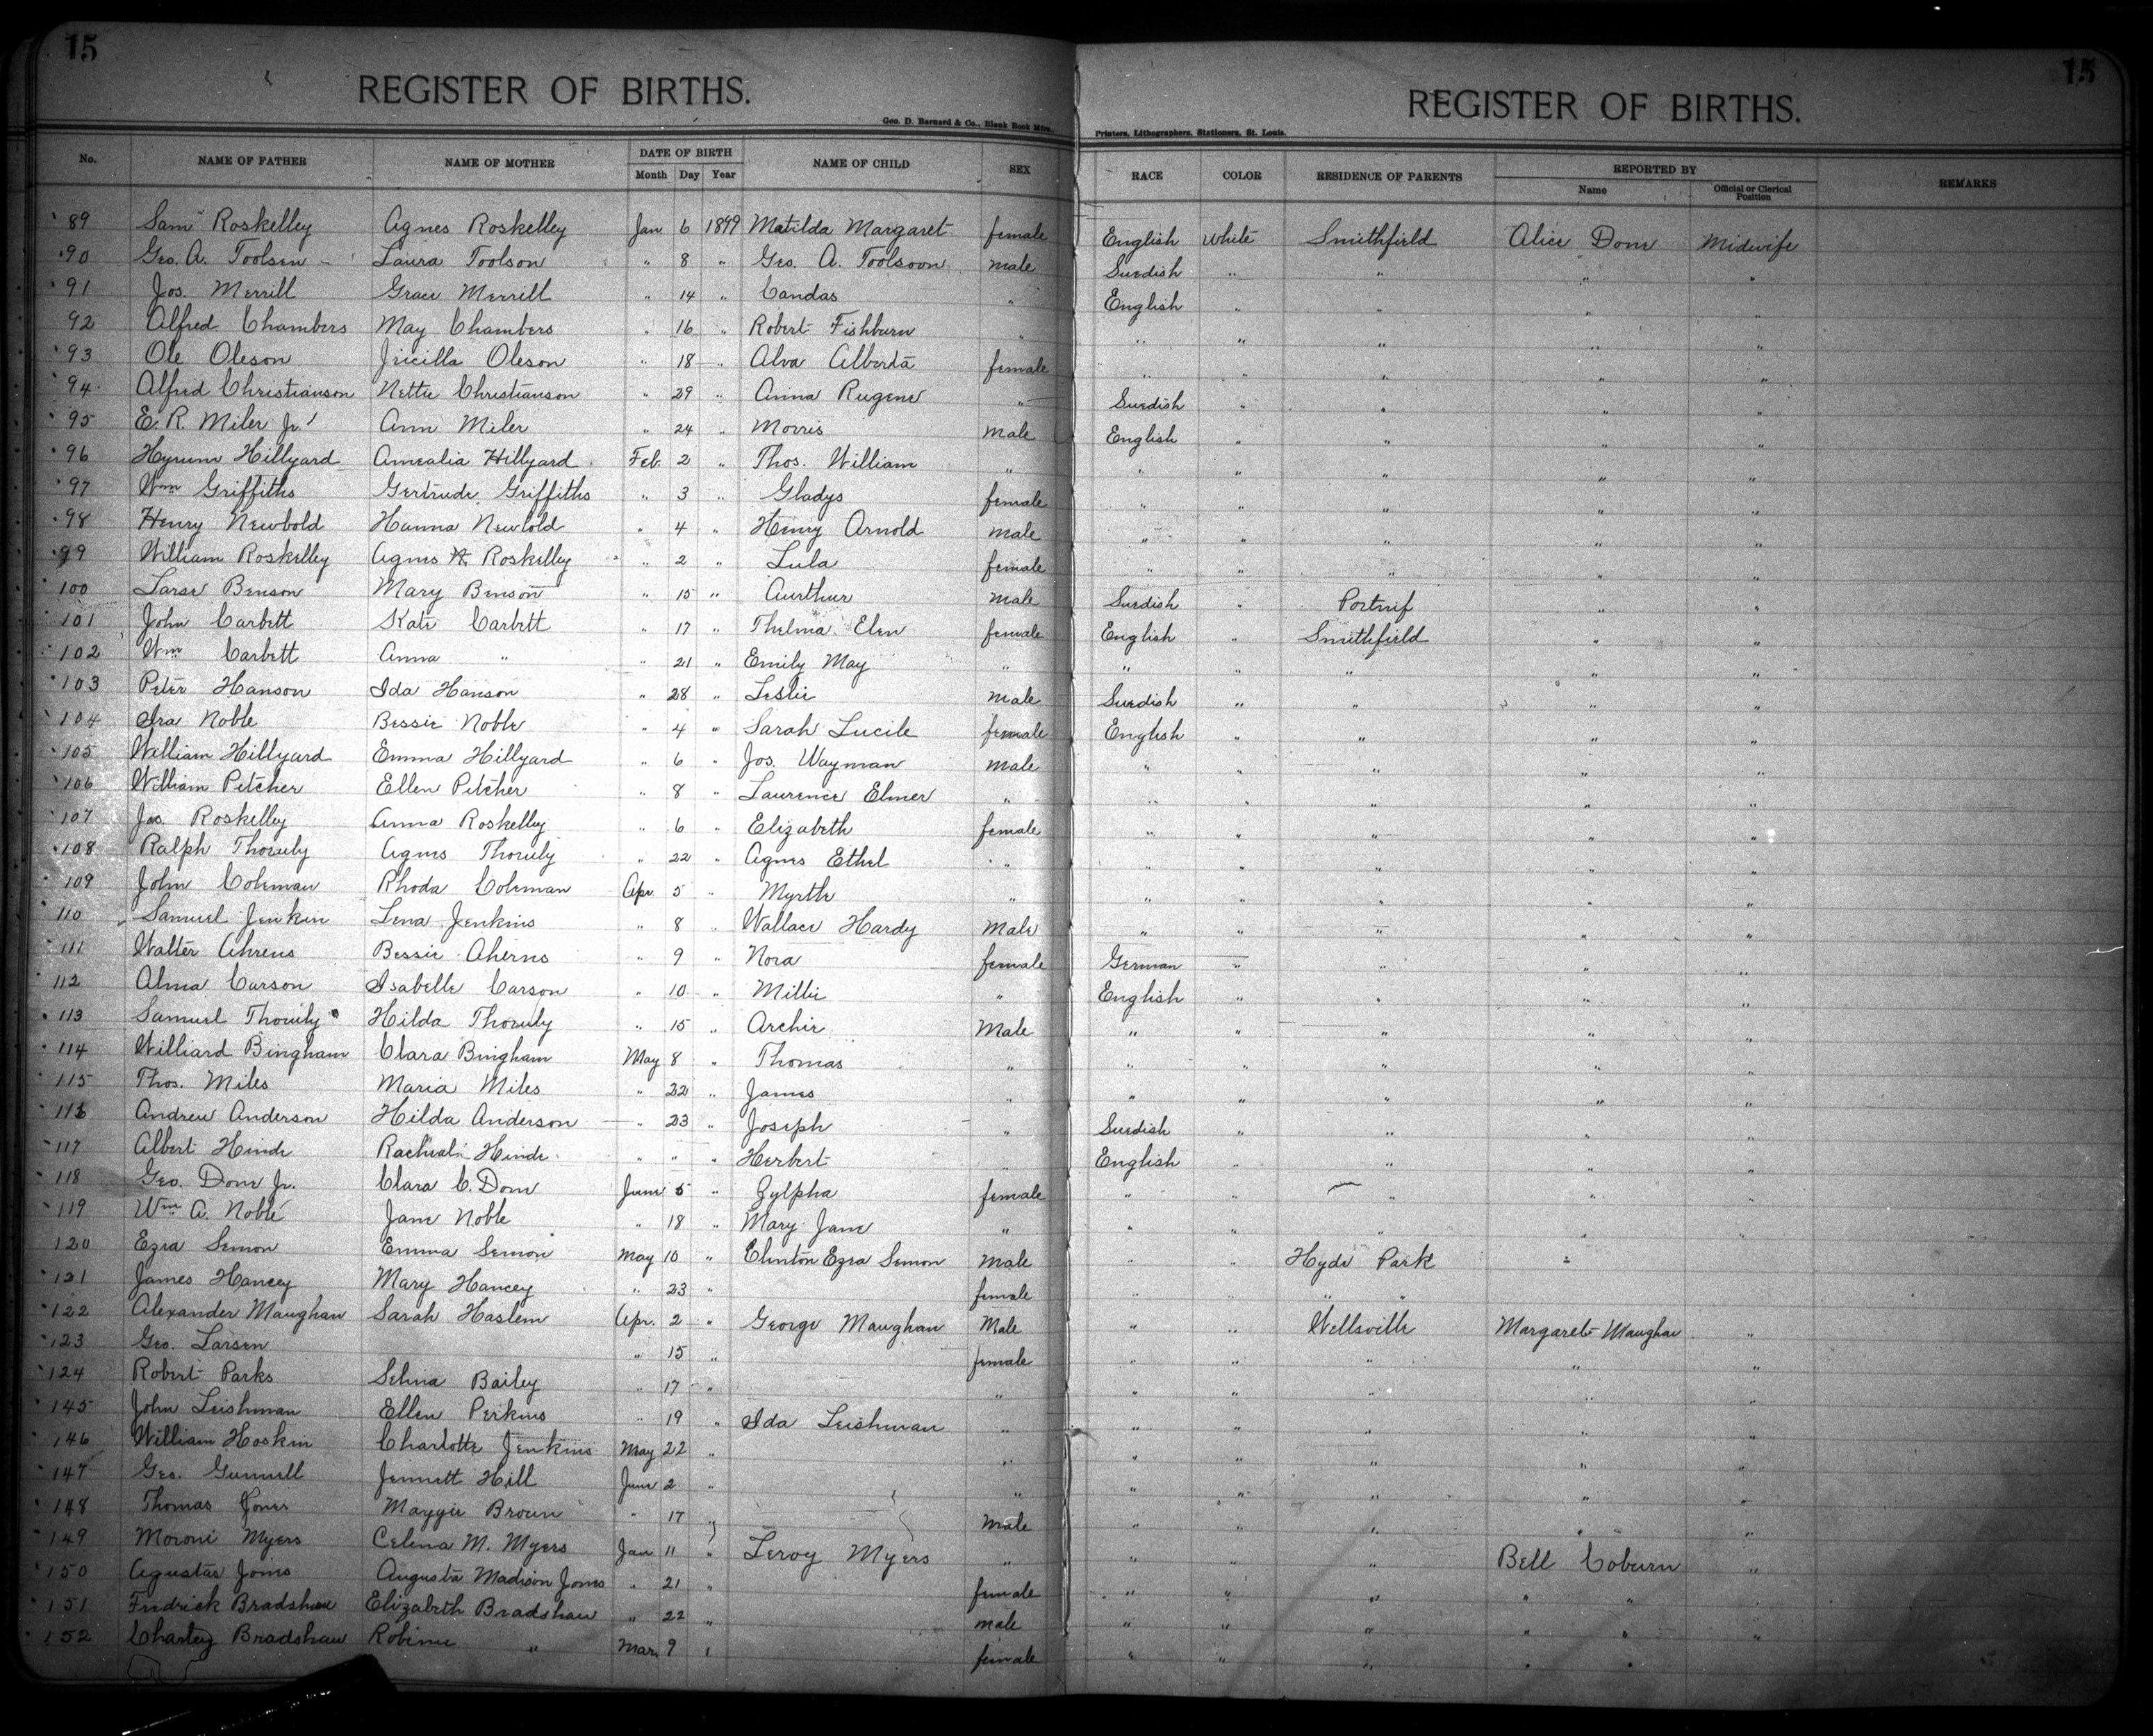 15 15
REGISTER OF BIRTHS. REGISTER OF BIRTHS.
Geo. D. Barnard & Co., Blank Book Mfrs. Printers, Lithographers, Stationers, St. Louis.
No. NAME OF FATHER NAME OF MOTHER DATE OF BIRTH NAME OF CHILD SEX RACE COLOR RESIDENCE OF PARENTS REPORTED BY REMARKS
Month Day Year Name Official or Clerical Position
89 Sam Roskelley Agnes Roskelley Jan 6 1899 Matilda Margaret female English White Smithfield Alice Done Midwife
90 Geo. A. Toolsen Laura Toolson " 8 " Geo. A. Toolsoon male Swedish " " " "
91 Jos. Merrill Grace Merrill " 14 " Candas " English " " " "
92 Alfred Chambers May Chambers " 16 " Robert Fishburn " " " " " "
93 Ole Oleson Jricilla Oleson " 18 " Alva Alberta female " " " " "
94 Alfred Christianson Nettie Christianson " 29 " Anna Rugene " Swedish " " " "
95 E. R. Miler Jr. Ann Miler " 24 " Morris male English " " " "
96 Hyrum Hillyard Amealia Hillyard Feb. 2 " Thos. William " " " " " "
97 Wm Griffiths Gertrude Griffiths " 3 " Gladys female " " " " "
98 Henry Newbold Hanna Newbold " 4 " Henry Arnold male " " " " "
99 William Roskelley Agnes Roskelley " 2 " Lula female " " " " "
100 Larse Benson Mary Benson " 15 " Aurthur male Swedish " Portnif " "
101 John Carbett Kate Carbett " 17 " Thelma Elen female English " Smithfield " "
102 Wm Carbett Anna " " 21 " Emily May " " " " " "
103 Peter Hanson Ida Hanson " 28 " Leslie male Swedish " " " "
104 Ira Noble Bessie Noble " 4 " Sarah Lucile female English " " " "
105 William Hillyard Emma Hillyard " 6 " Jos. Wayman male " " " " "
106 William Pitcher Ellen Pitcher " 8 " Laurence Elmer " " " " " "
107 Jas. Roskelley Anna Roskelley " 6 " Elizabeth female " " " " "
108 Ralph Thornly Agnes Thornly " 22 " Agnes Ethel " " " " " "
109 John Coleman Rhoda Coleman Apr. 5 " Myrtle " " " " " "
110 Samuel Jenkin Lena Jenkins " 8 " Wallace Hardy Male " " " " "
111 Walter Ahrens Bessie Aherns " 9 " Nora female German " " " "
112 Alma Carson Isabelle Carson " 10 " Millie " English " " " "
113 Samuel Thornly Hilda Thornly " 15 " Archie Male " " " " "
114 Williard Bingham Clara Bingham May 8 " Thomas " " " " " "
115 Thos. Miles Maria Miles " 22 " James " " " " " "
116 Andrew Anderson Hilda Anderson " 23 " Joseph " Swedish " " " "
117 Albert Hinde Racheal Hinde " " " Herbert " English " " " "
118 Geo. Done Jr. Clara C. Done June 5 " Zylpha female " " " " "
119 Wm A. Noble Jane Noble " 18 " Mary Jane " " " " " "
120 Ezra Semon Emma Semon May 10 " Clinton Ezra Semon Male " " Hyde Park "
121 James Hancey Mary Hancey " 23 " female " " " "
122 Alexander Maughan Sarah Haslem Apr. 2 " George Maughan Male " " Wellsville Margaret Maughan "
123 Geo. Larsen " 15 " female " " " " "
124 Robert Parks Selina Bailey " 17 " " " " " " "
145 John Leishman Ellen Perkins " 19 " Ida Leishman " " " " " "
146 William Hoskin Charlotte Jenkins May 22 " " " " " " "
147 Geo. Gunnell Jennett Hill June 2 " " " " " " "
148 Thomas Jones Maggie Brown " 17 " Male " " " " "
149 Moroni Myers Celena M. Myers Jan 11 " Leroy Myers " " " " Bell Coburn "
150 Agustas Jones Augusta Madison Jones " 21 " female " " " " " "
151 Fredrick Bradshaw Elizabeth Bradshaw " 22 " male " " " " " "
152 Charley Bradshaw Robinie " Mar. 9 " female " " " " " "